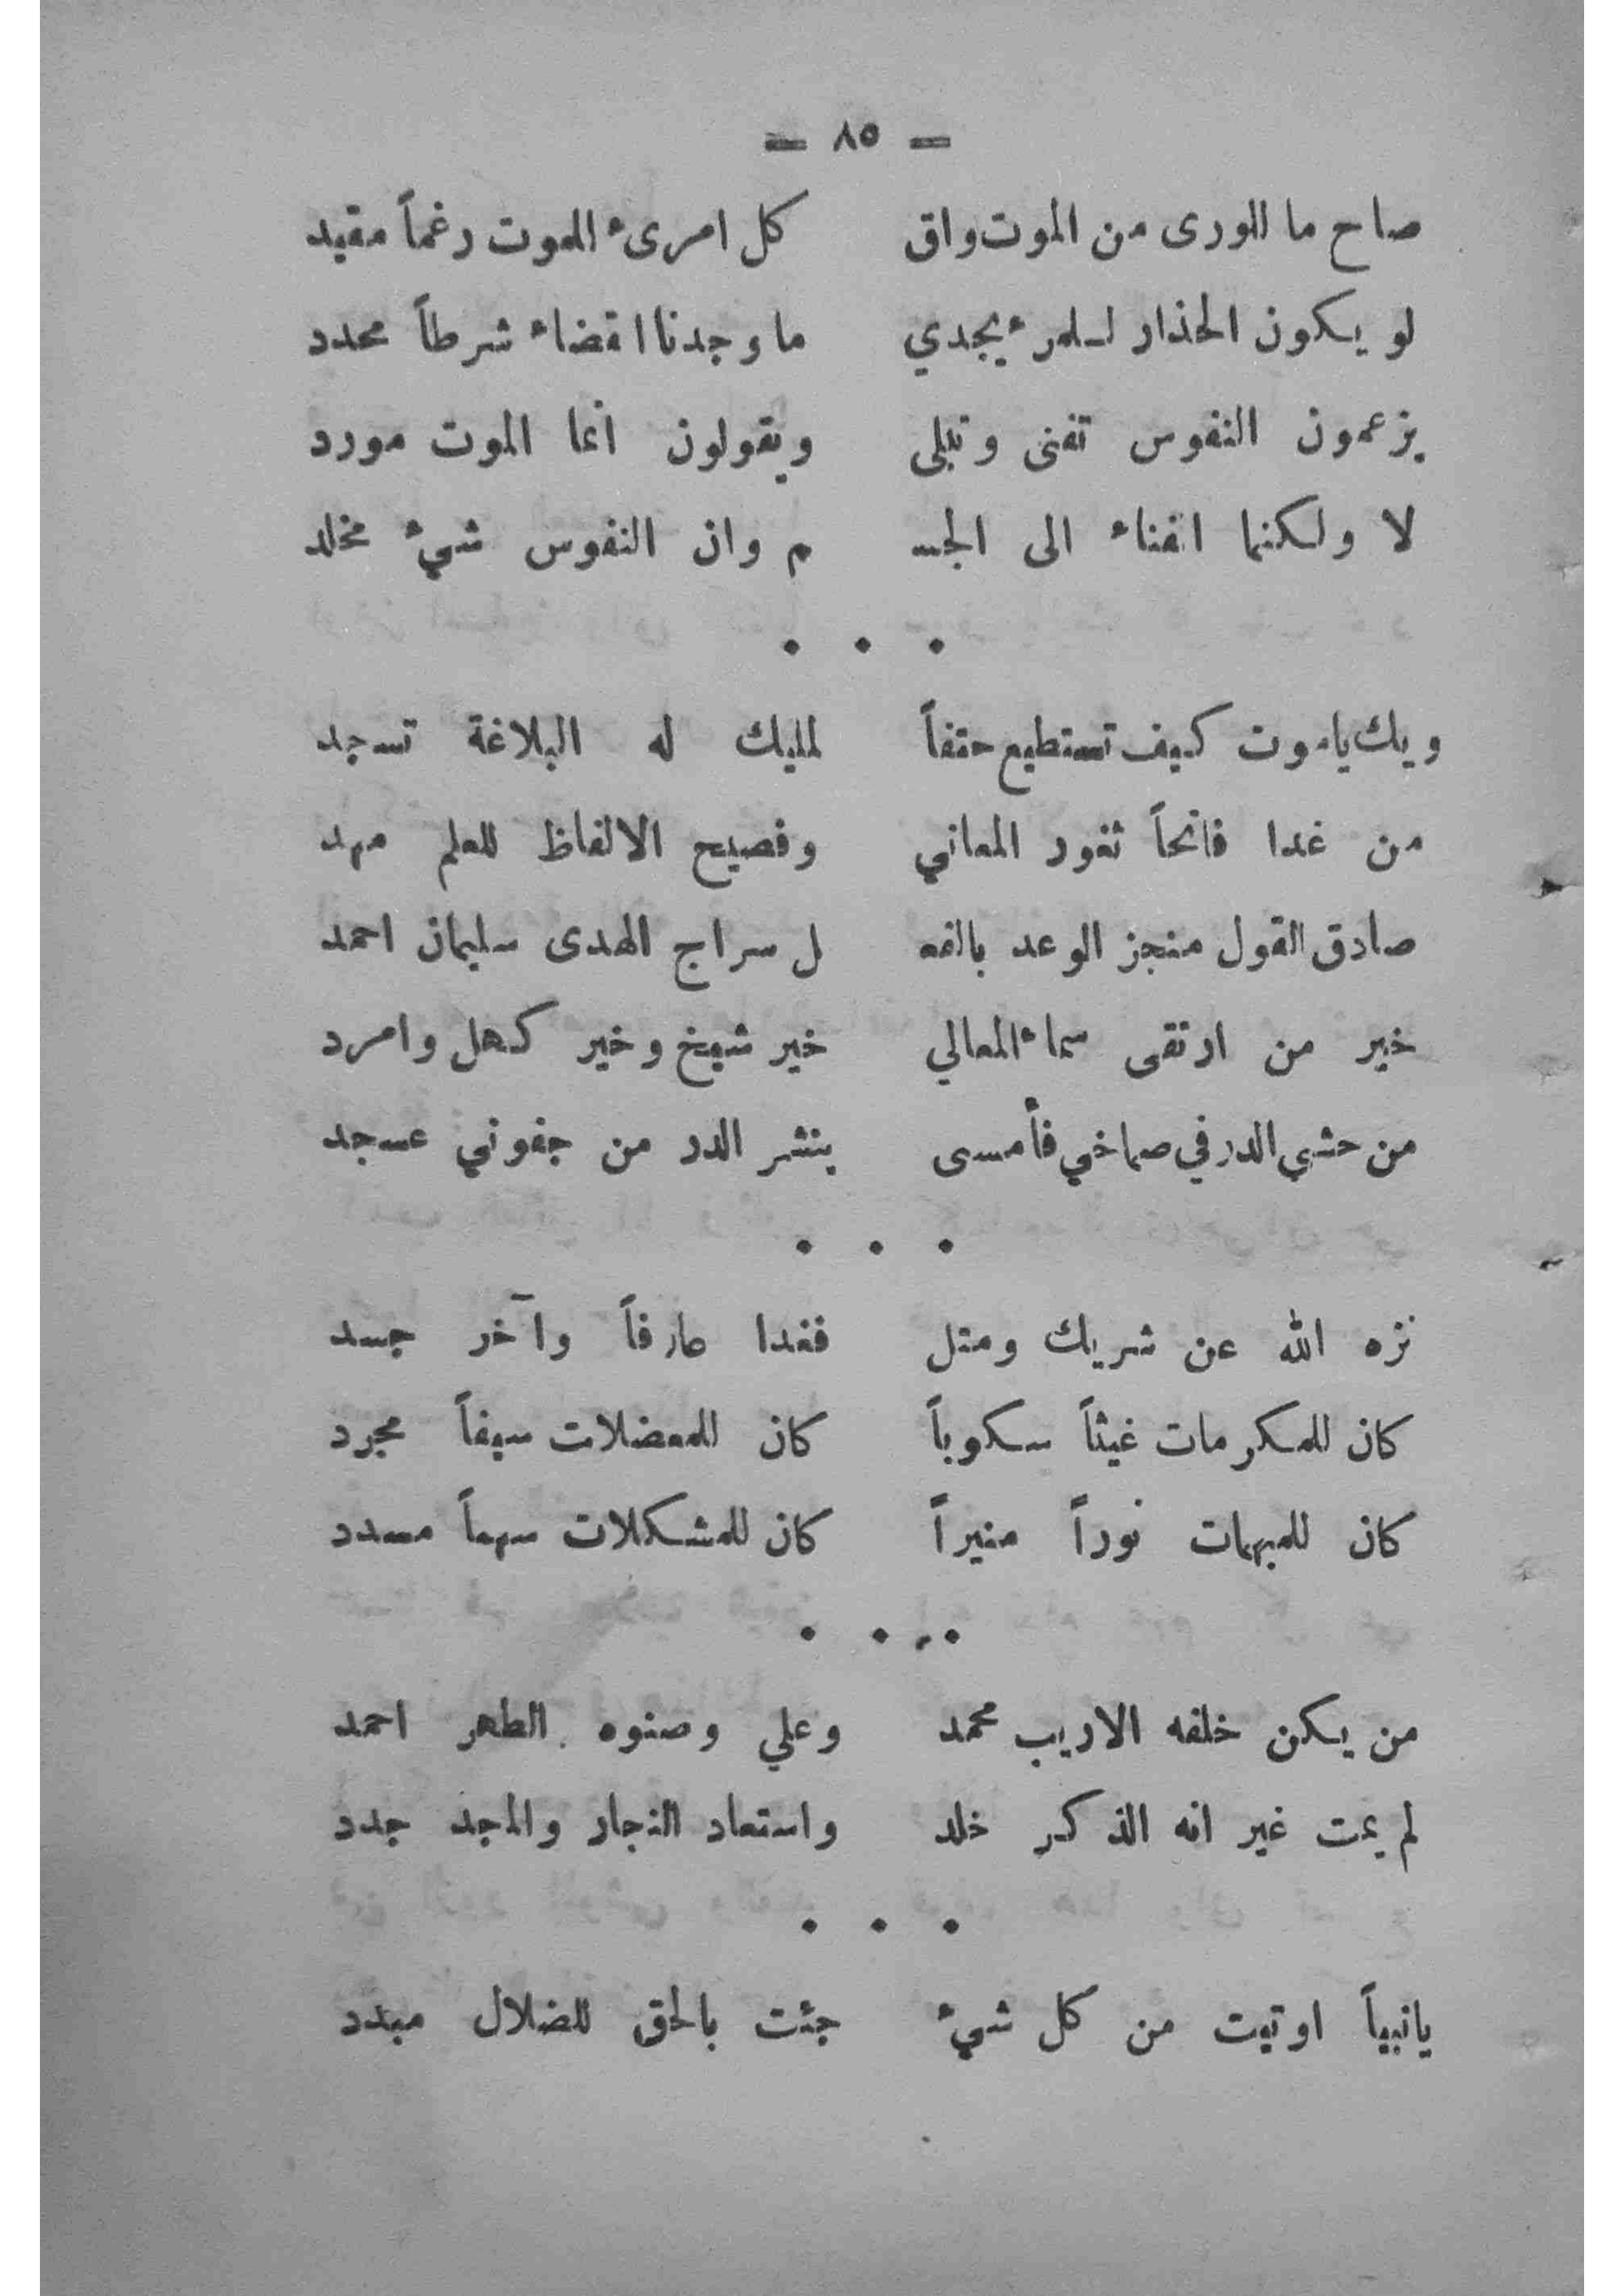 — ٨٥ —
صاح ما للورى من الموت واق كل امرىء للموت رغماً مقيد
لو يكون الحذار للمرء يجدي ما وجدنا القضاء شرطاً محدد
يزعمون النفوس تفنى وتبلى ويقولون انما الموت مورد
لا ولكنما الفناء الى الجسـ ـم وان النفوس شيء مخلد
• • •
ويك ياموت كيف تستطيع حتفاً لمليك له البلاغة تسجد
من غدا فاتحاً ثغور المعاني وفصيح الالفاظ للعلم مهد
صادق القول منجز الوعد بالفعـ ـل سراج الهدى سليمان احمد
خير من ارتقى سماء المعالي خير شيخ وخير كهل وامرد
من حشى الدر في صماخي فأمسى ينثر الدر من جفوني عسجد
• • •
نزه الله عن شريك ومثل فغدا عارفاً وآخر جسد
كان للمكرمات غيثاً سكوباً كان للمعضلات سيفاً مجرد
كان للمبهمات نوراً منيراً كان للمشكلات سهماً مسدد
• • •
من يكن خلفه الاريب محمد وعلي وصنوه الطهر احمد
لم يمت غير انه الذكر خلد واستعاد النجار والمجد جدد
• • •
يانبياً اوتيت من كل شيء جئت بالحق للضلال مبدد